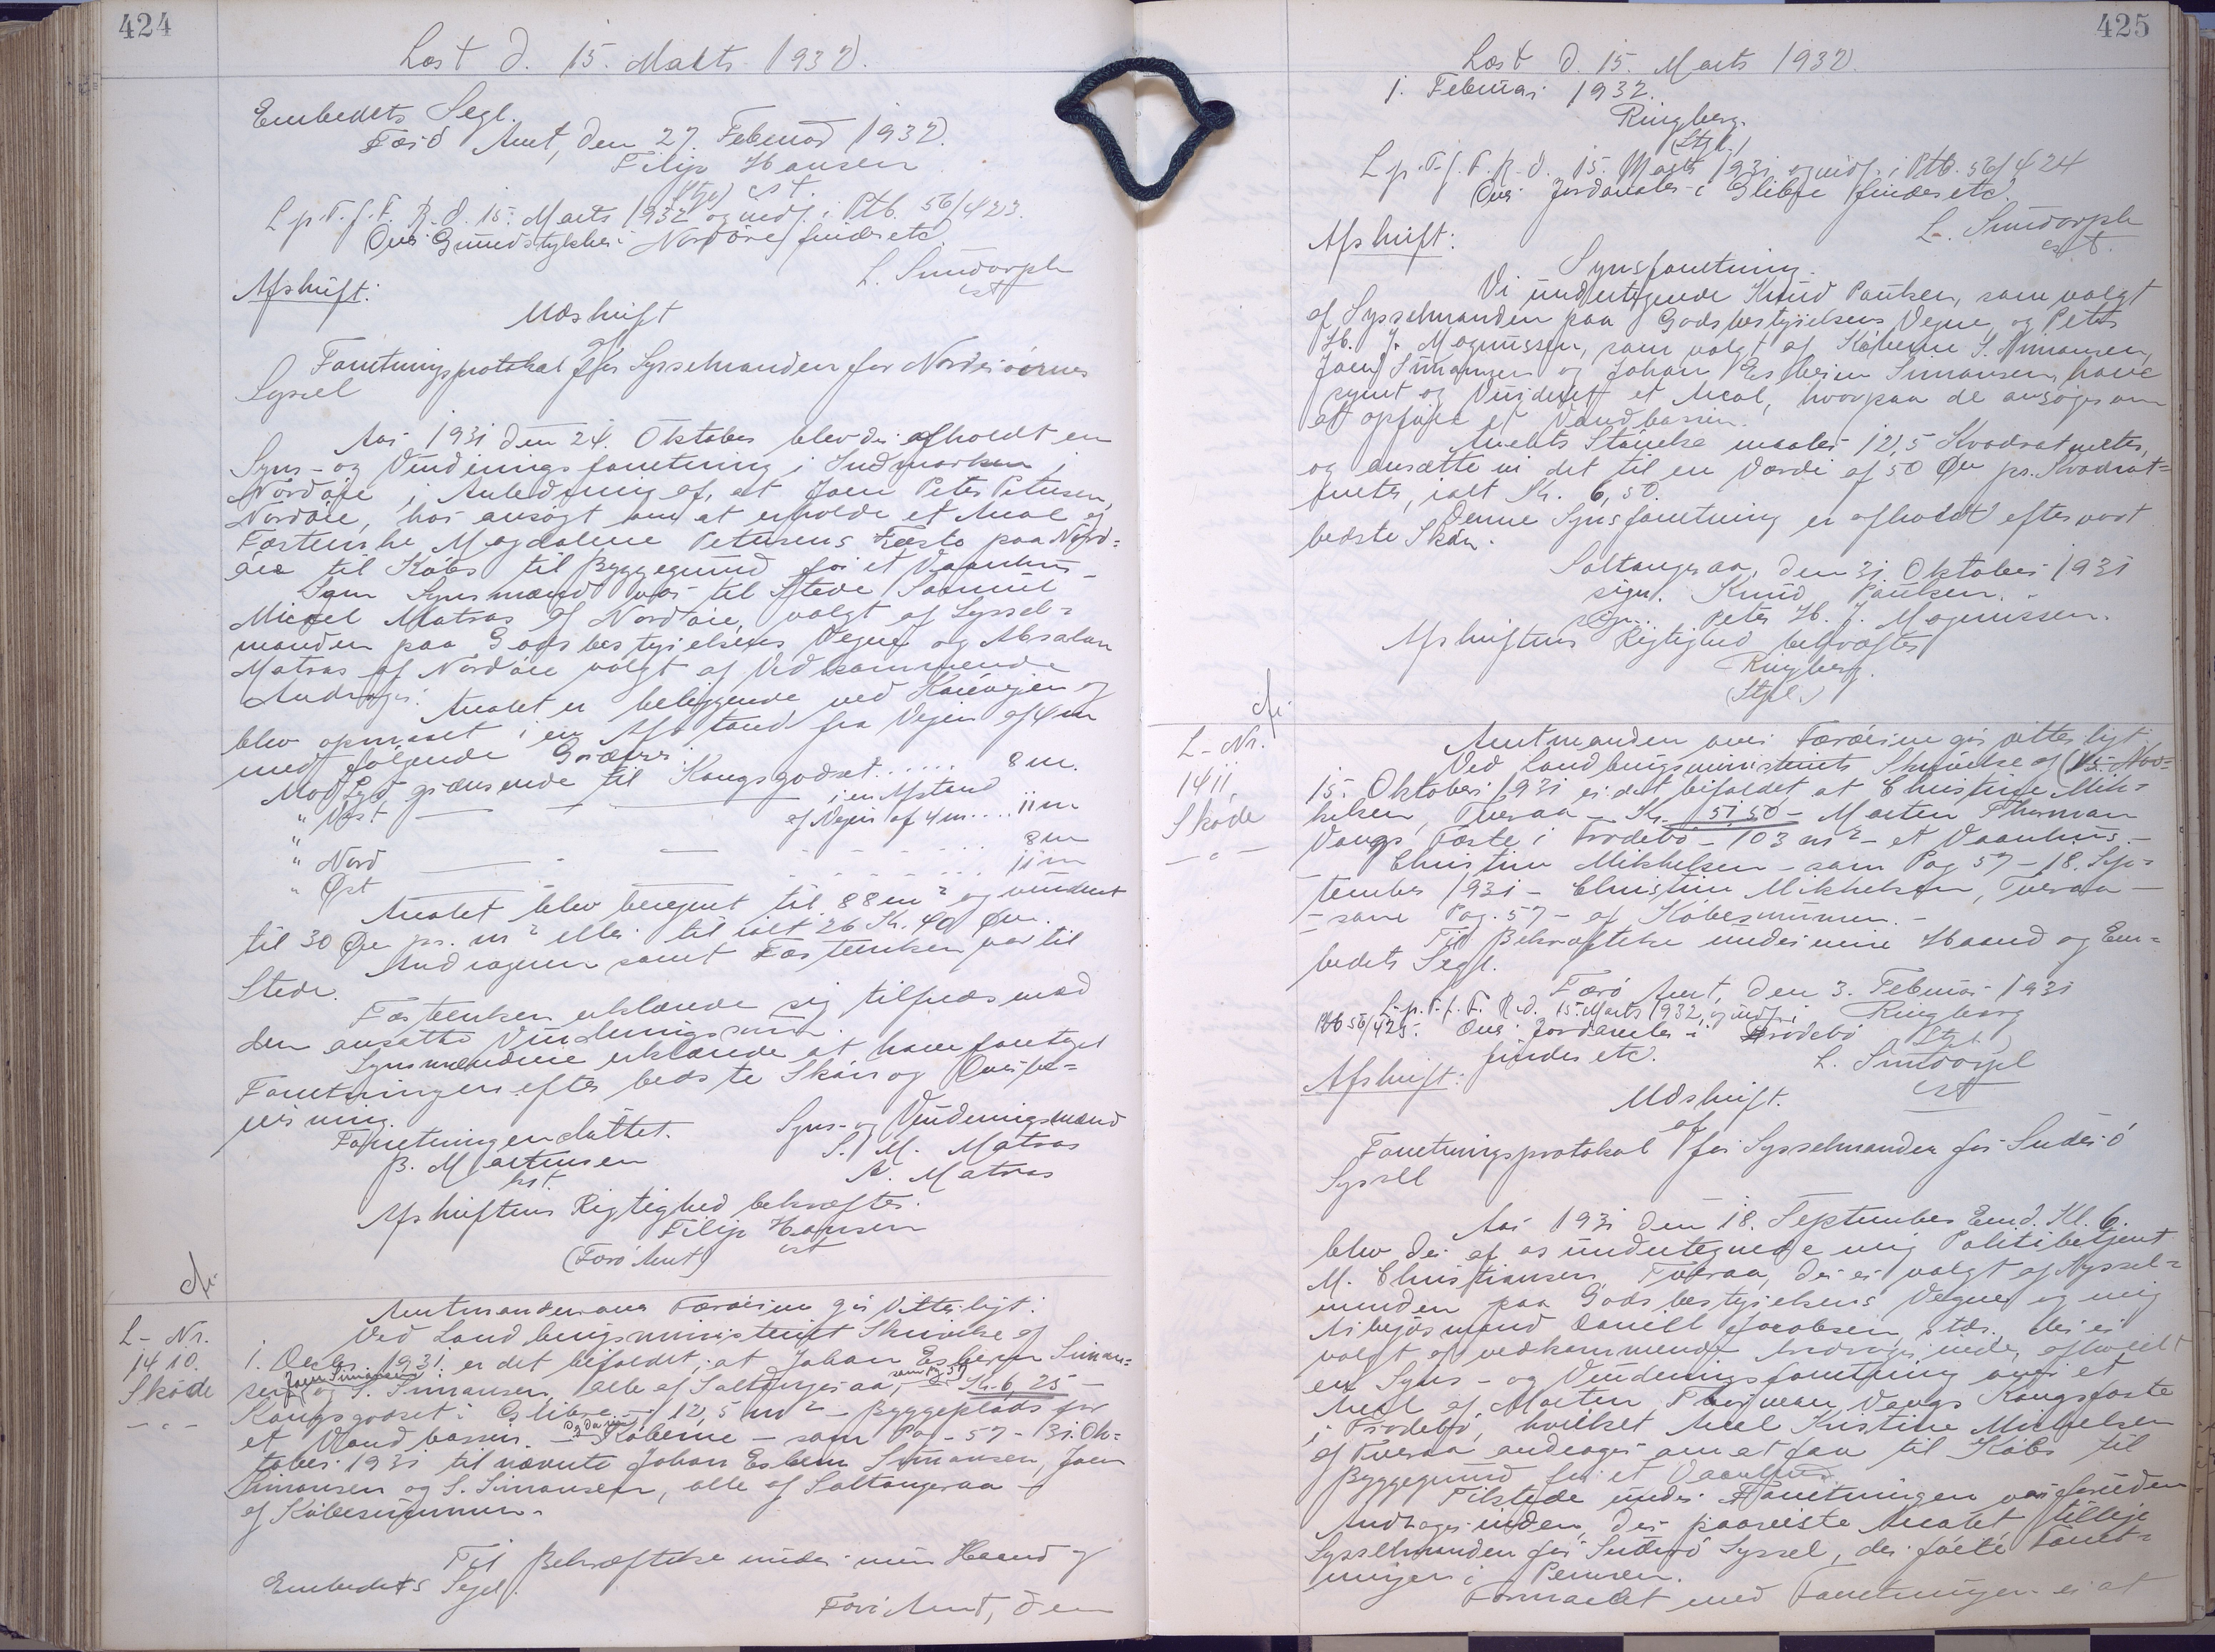 424
Læst d. 15. Marts 1932.
Embedets Segl.
Færö Amt, den 27. Februar 1932.
Filip Hansen
cst.
L. p. T. f. F. R. d. 15. Marts 1932 og indf. i Ptb. 56/423.
Over Grundstykker i Nordöre findes etc.
L. Sundorph
cst
Afskrift:
Udskrift
af
Forretningsprotokol for Sysselmanden for Norderöernes
Syssel
Aar 1931 den 24. Oktober blev der afholdt en
Syns- og Vurderingsforretning i Indmarken i
Nordöre, i Anledning af, at Joen Peter Petersen,
Nordöre, har ansøgt om at erholde et Areal af
Fæsterske Magdalene Petersens Fæste paa Nord-
öre til Købs til Byggegrund for et Vaanhus.
Som Synsmænd var til Stede Samuel
Micael Matras af Nordöre, valgt af Syssel-
manden paa Godsbestyrelsens Vegne og Absalon
Matras af Nordöre valgt af Vedkommende
Andrager.
Arealet er beliggende ved Köreveien og
blev opmaalt i en Afstand fra Vejen af 4 m
med følgende Grænser
Mod Syd grænsende til Kongsgodset . . . . . . 8 m.
" Vest — — — i en Afstand
af Vejen af 4 m . . . . 11 m
" Nord — — — . . . . . . 8 m
" Øst — — — . . . . . . 11 m
Arealet blev beregnet til 88 m² og vurderet
til 30 Øre pr. m² eller til ialt 26 Kr. 40 Øre.
Andrageren samt Fæstersken var til
Stede.
Fæstersken erklærede sig tilfreds med
den ansatte Vurderingssum.
Synsmændene erklærede at have foretaget
Forretningen efter bedste Skön og Overbe-
visning.
Forretningen sluttet.
Syns- og Vurderingsmænd
B. Mortensen
S. M. Matras
kst.
A. Matras
Afskriftens Rigtighed bekræftes.
Filip Hansen
cst
(Færö Amt)
L- Nr.
1410.
Skøde
Amtmanden over Færöerne gör Vitterligt:
Ved Landbrugsministeriets Skrivelse af
1. Decbr. 1931 er det bifaldet, at Johan Esbern Simon-
sen, Joen Simonsen og S. Simonsen, alle af Saltangeraa, som Pag 57 — Kr. 6,25 —
Kongsgodset i Glibre — 12,5 m² — Byggeplads for
et Vandbassin. — Köberne — som Pag - 57 - 31. Ok-
tober 1931 til nævnte Johan Esbern Simonsen, Joen
Simonsen og S. Simonsen, alle af Saltangeraa —
af Köbesummen. -
Til Bekræftelse under min Haand og
Embedets Segl.
Færö Amt, den
425
Læst d. 15. Marts 1932.
1. Februar 1932.
Ringberg.
(Stpl.)
L. p. T. f. F. R. d. 15. Marts 1931 og indf. i Ptb. 56/424
Over Jordarealer i Glibre findes etc.
L. Sundorph
cst.
Afskrift:
Synsforretning.
Vi undertegnede Knud Poulsen, som valgt
af Sysselmanden paa Godsbestyrelsens Vegne, og Peter
H. J. Magnussen, som valgt af Köberne S. Simonsen,
Joen Simonsen og Johan Esbern Simonsen, have
synet og Vurderet et Areal, hvorpaa de ansøger om
at opføre et Vandbassin.
Arealets Størrelse maaler 12,5 Kvadratmeter,
og ansætte vi det til en Værdi af 50 Øre pr. Kvadrat-
meter, ialt Kr. 6,50.
Denne Synsforretning er afholdt efter vort
bedste Skön.
Saltangeraa, den 31. Oktober 1931
sign. Knud Poulsen.
sign. Peter H. J. Magnussen.
Afskriftens Rigtighed bekræftes
Ringberg.
(Stpl.)
L- Nr.
1411.
Skøde
Amtmanden over Færöerne gör vitterligt
Ved Landbrugsministeriets Skrivelse af
15. Oktober 1931 er det bifaldet at Christine Mik-
kelsen, Tveraa — Kr. 51,50 — Morten Thorman
Vangs Fæste i Frodebö — 103 m² — et Vaanhus. —
Christine Mikkelsen — som Pag 57 — 18. Sep-
tember 1931 — Christine Mikkelsen, Tveraa —
— som Pag. 57 — af Köbesummen. —
Til Bekræftelse under min Haand og Em-
bedets Segl.
Færö Amt, den 3. Februar 1931
L. p. T. f. F. R. d. 15. Marts 1932, og indf. i
Ringberg
Ptb 56/425. Over Jordarealer i Frodebö
Stpl.
findes etc.
L. Sundorph
cst
Afskrift:
Udskrift.
af
Forretningsprotokol for Sysselmanden for Suderö
Syssel
Aar 1931 den 18. September Emd. Kl. 6.
blev der af os undertegnede mig Politibetjent
M. Christiansen, Tveraa, der er valgt af Syssel-
manden paa Godsbestyrelsens Vegne og mig
Arbejdsmand Daniell Jacobsen, stds. der er
valgt af vedkommende Andragerinde, afholdt
en Syns- og Vurderingsforretning over et
Areal af Morten Thorman Vangs Kongsfæste
i Frodebö, hvilket Areal Kristine Mikkelsen
af Tveraa andrager om at faa til Købs til
Byggegrund for et Vaanhus.
Tilstede under Forretningen var foruden
Andragerinden, der paaviste Arealet, tillige
Sysselmanden for Suderö Syssel, der förte Forret-
ningen i Pennen.
Formaalet med Forretningen er at